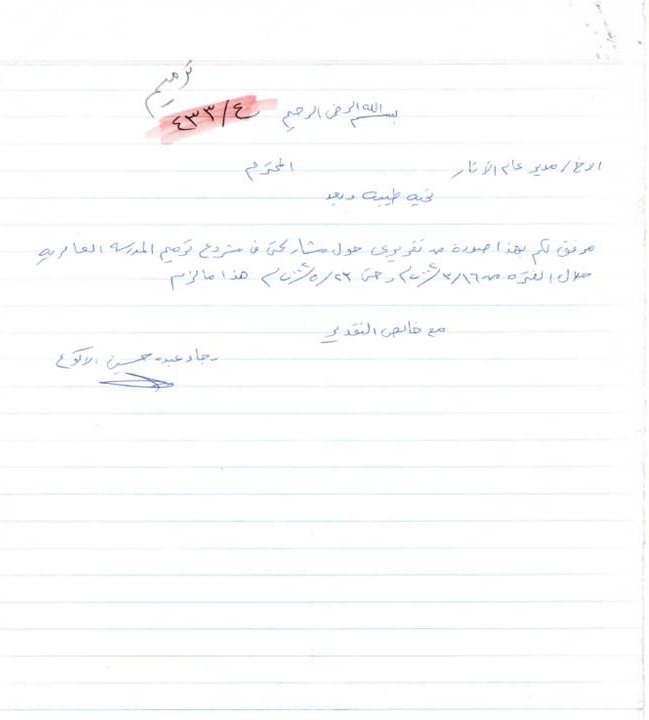 ترميم
٤٣٣/٤
بسم الله الرحمن الرحيم
الاخ/مدير عام الآثار المحترم
تحيه طيبه وبعد
مرفق لكم بهذا صورة من تقريري حول مشاركتي في مشروع ترميم المدرسه العامريه
خلال الفتره من ٣/١٦ وحتى ٥/٢٣ هذا مالزم
مع خالص التقدير
رجاء عبده حسين الاكوع